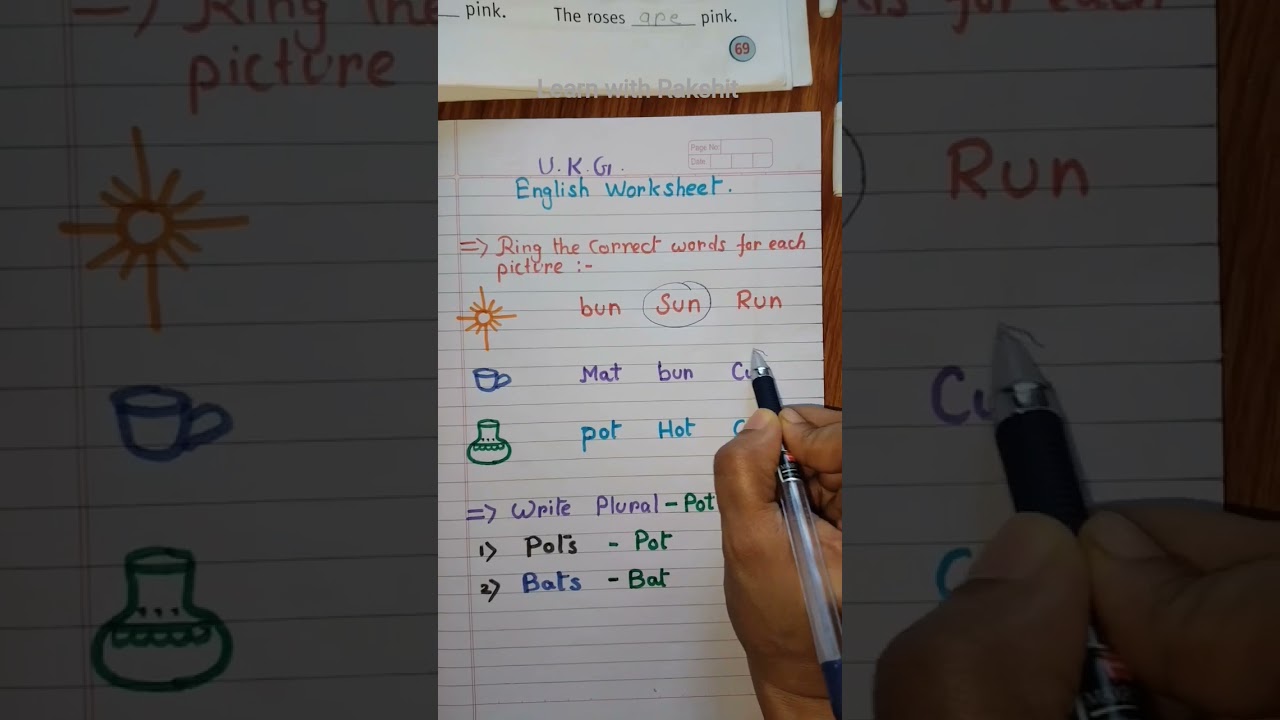 pink. The roses are pink.
69
Learn with Rakshit
Page No
Date
U.K.G.
English Worksheet.
=> Ring the correct words for each
picture :-
bun Sun Run
Mat bun
pot Hot
=> Write Plural - Pot
1) Pots - Pot
2) Bats - Bat
Ring the
picture
for each
Run